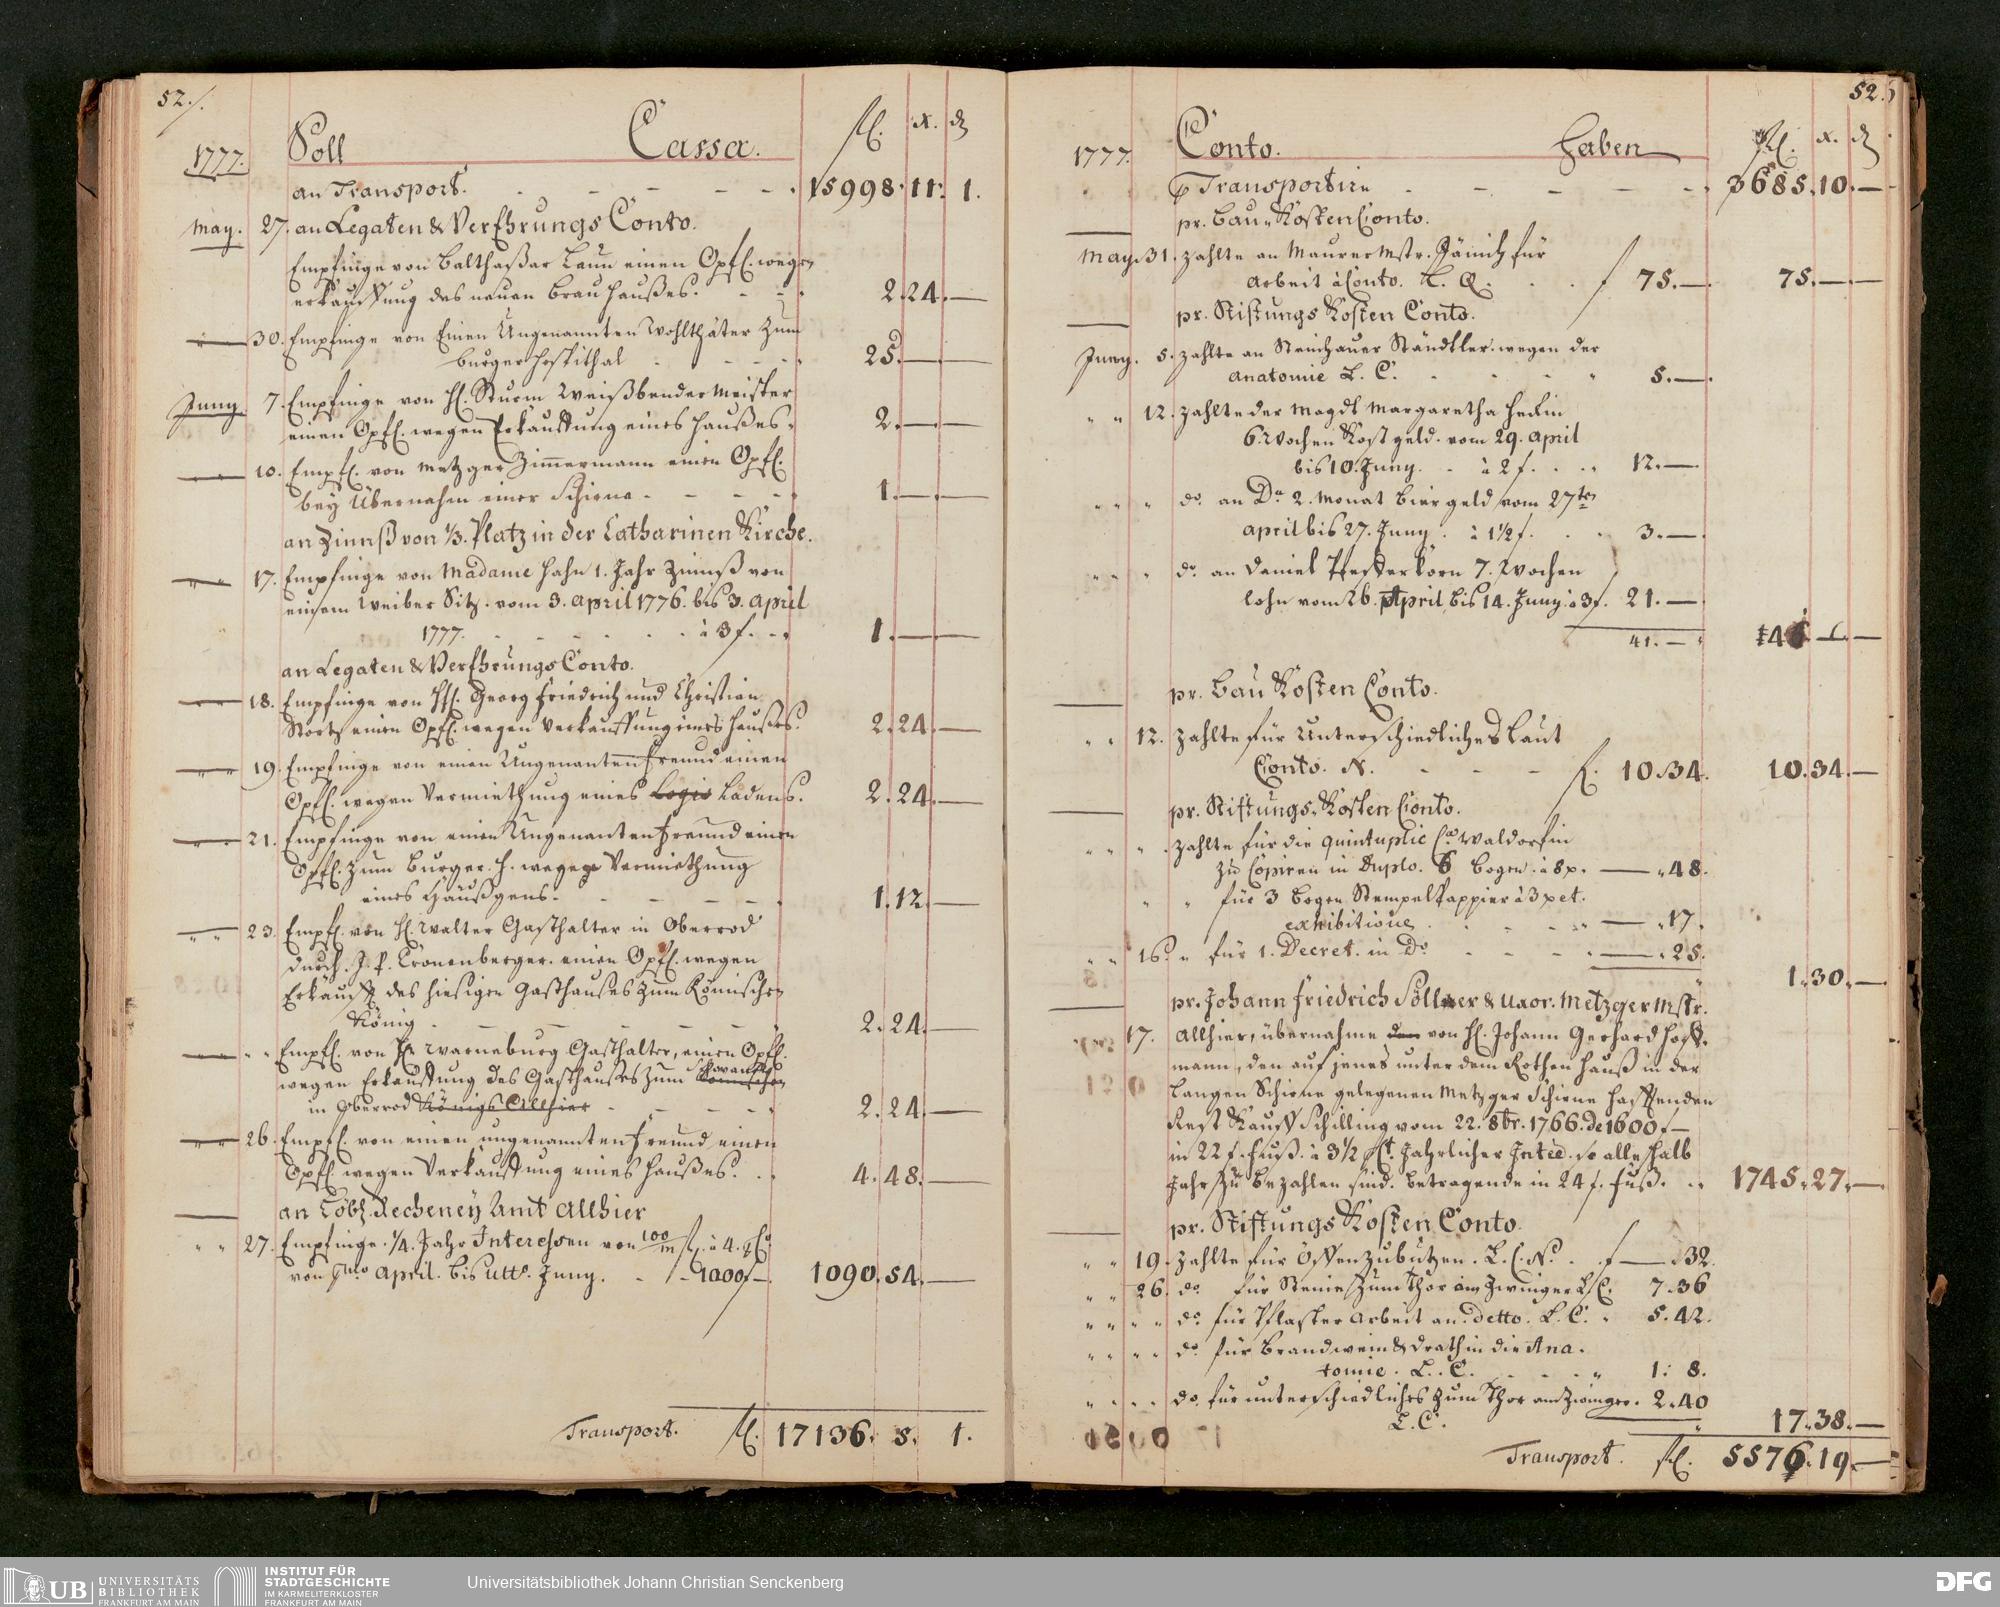 52./.
1777. Soll Cassa. fl. x. ₰
an Transport. 15998. 11. 1.
May. 27. an Legaten & Verehrungs Conto.
Empfinge von Balthaßar Laun einen Opfl. wegen
erkauffung des neuen Brauhaußes. 2. 24. —
30. Empfinge von Einen Ungenannten Wohlthäter zum
burger hospithal 25. — —
Juny 7. Empfinge von H. Sturm Weißbender Meister
einen Opfl. wegen Erkauffung eines haußes. 2. — —
10. Empf. von Metzger Zimmermann einen Opfl.
bey Übernahm einer Schirne 1. — —
an Zinnß von 1/3. Platz in der Catharinen Kirche.
17. Empfinge von Madame Hahn 1. Jahr Zinnß von
einem Weiber Sitz. vom 3. april 1776. bis 3. april
1777. à 3 f. 1. — —
an Legaten & Verehrungs Conto.
18. Empfinge von HH. Georg Friedrich und Christian
Stortz einen Opfl. wegen Verkauffung eines haußes. 2. 24. —
19. Empfinge von einen Ungenanten freund einen
Opfl. wegen Vermiethung eines Logis Ladens. 2. 24. —
21. Empfinge von einen Ungenanten freund einen
Opfl. zum Burger. H. wegen Vermiethung
eines Häußgens. 1. 12. —
23. Empf. von H. Walter Gasthalter in Oberrod
durch. J. P. Cronenberger. einen Opfl. wegen
Erkauff des hiesigen Gasthauses zum Römischen
König 2. 24. —
Empf. von Hr. Warneburg Gasthalter, einen Opfl.
wegen Erkauffung des Gasthaußes zum Römischen
in Oberrod Königs Allhier 2. 24. —
26. Empf. von einen ungenannten freund einen
Opfl. wegen Verkauffung eines haußes. 4. 48. —
an Löbl. Recheney Amt Allhier
27. Empfinge. 1/4. Jahr Interessen von 100/m fl. à 4. pCo
von pmo April. bis Ulto. Juny. 1000 f — 1090. 54. —
Transport. fl. 17136. 5. 1.
52.
1777. Conto. Haben fl. x. ₰
p Transportirn 3685. 10. —
pr. Bau-Kosten Conto.
May. 31. zahlte an Maurer Mstr. Jänich für
Arbeit à Conto. L. Q. f 75. — 75. — —
pr. Stiftungs Kosten Conto.
Juny. 5. zahlte an Steinhauer Ständtler. wegen der
anatomie L. C. 5. —
12. zahlte der Magdt Margaretha Heckin
6. Wochen Kostgeld. vom 29. april
bis 10. Juny. à 2 f. 12. —
do. an Da 2. Monat Biergeld vom 27ten
april bis 27. Juny. à 1 1/2 f. 3. —
do. an Daniel Pfefferkorn 7. Wochen
lohn vom 26. April bis 14. Juny. à 3 f. 21. —
41. —
pr. Bau Kosten Conto.
12. zahlte für Unterschiedliches Laut
Conto. N. fl. 10. 34. 10. 34. —
pr. Stiftungs-Kosten Conto.
zahlte für die quintuplic Ca. Waldorfin
zu Copiren in Duplo. 6 Bogen. à 8 x. — 48.
für 3 Bogen Stempel Pappier à 3 x et.
exhibitione — 17.
16. für 1. Decret. in Do — 25.
1. 30. —
pr. Johann Friedrich Söllner & Uxor. Metzger Mstr.
17. Allhier, übernahme den von H. Johann Gerhard Hoff-
mann, den auf jenes unter dem Rothen Hauß in der
Langen Schirne gelegenen Metzger Schirne hafftenden
Rest Kauff Schilling vom 22. 8br. 1766. de 1600 f —
in 22 f. fuß. à 3 1/2 pCt. Jährlicher Intee. so alle halb
Jahr zu bezahlen sind. betragende in 24 f. fuß. 1745. 27. —
pr. Stiftungs Kosten Conto.
19. zahlte für Öffen zubutzen. L. C. No. f — 32.
26. do. für Steine zum Thor am Zwinger L. C. 7. 36
do. für Pflaster Arbeit an. detto. L. C. 5. 42.
do. für Brandwein & drath in die Ana-
tomie. L. C. 1. 8.
do. für unterschiedliches zum Thor am Zwinger. 2. 40
L. C. 17. 38. —
Transport. fl. 5576. 19. —
UB UNIVERSITÄTS
BIBLIOTHEK
FRANKFURT AM MAIN
INSTITUT FÜR
STADTGESCHICHTE
IM KARMELITERKLOSTER
FRANKFURT AM MAIN
Universitätsbibliothek Johann Christian Senckenberg
DFG